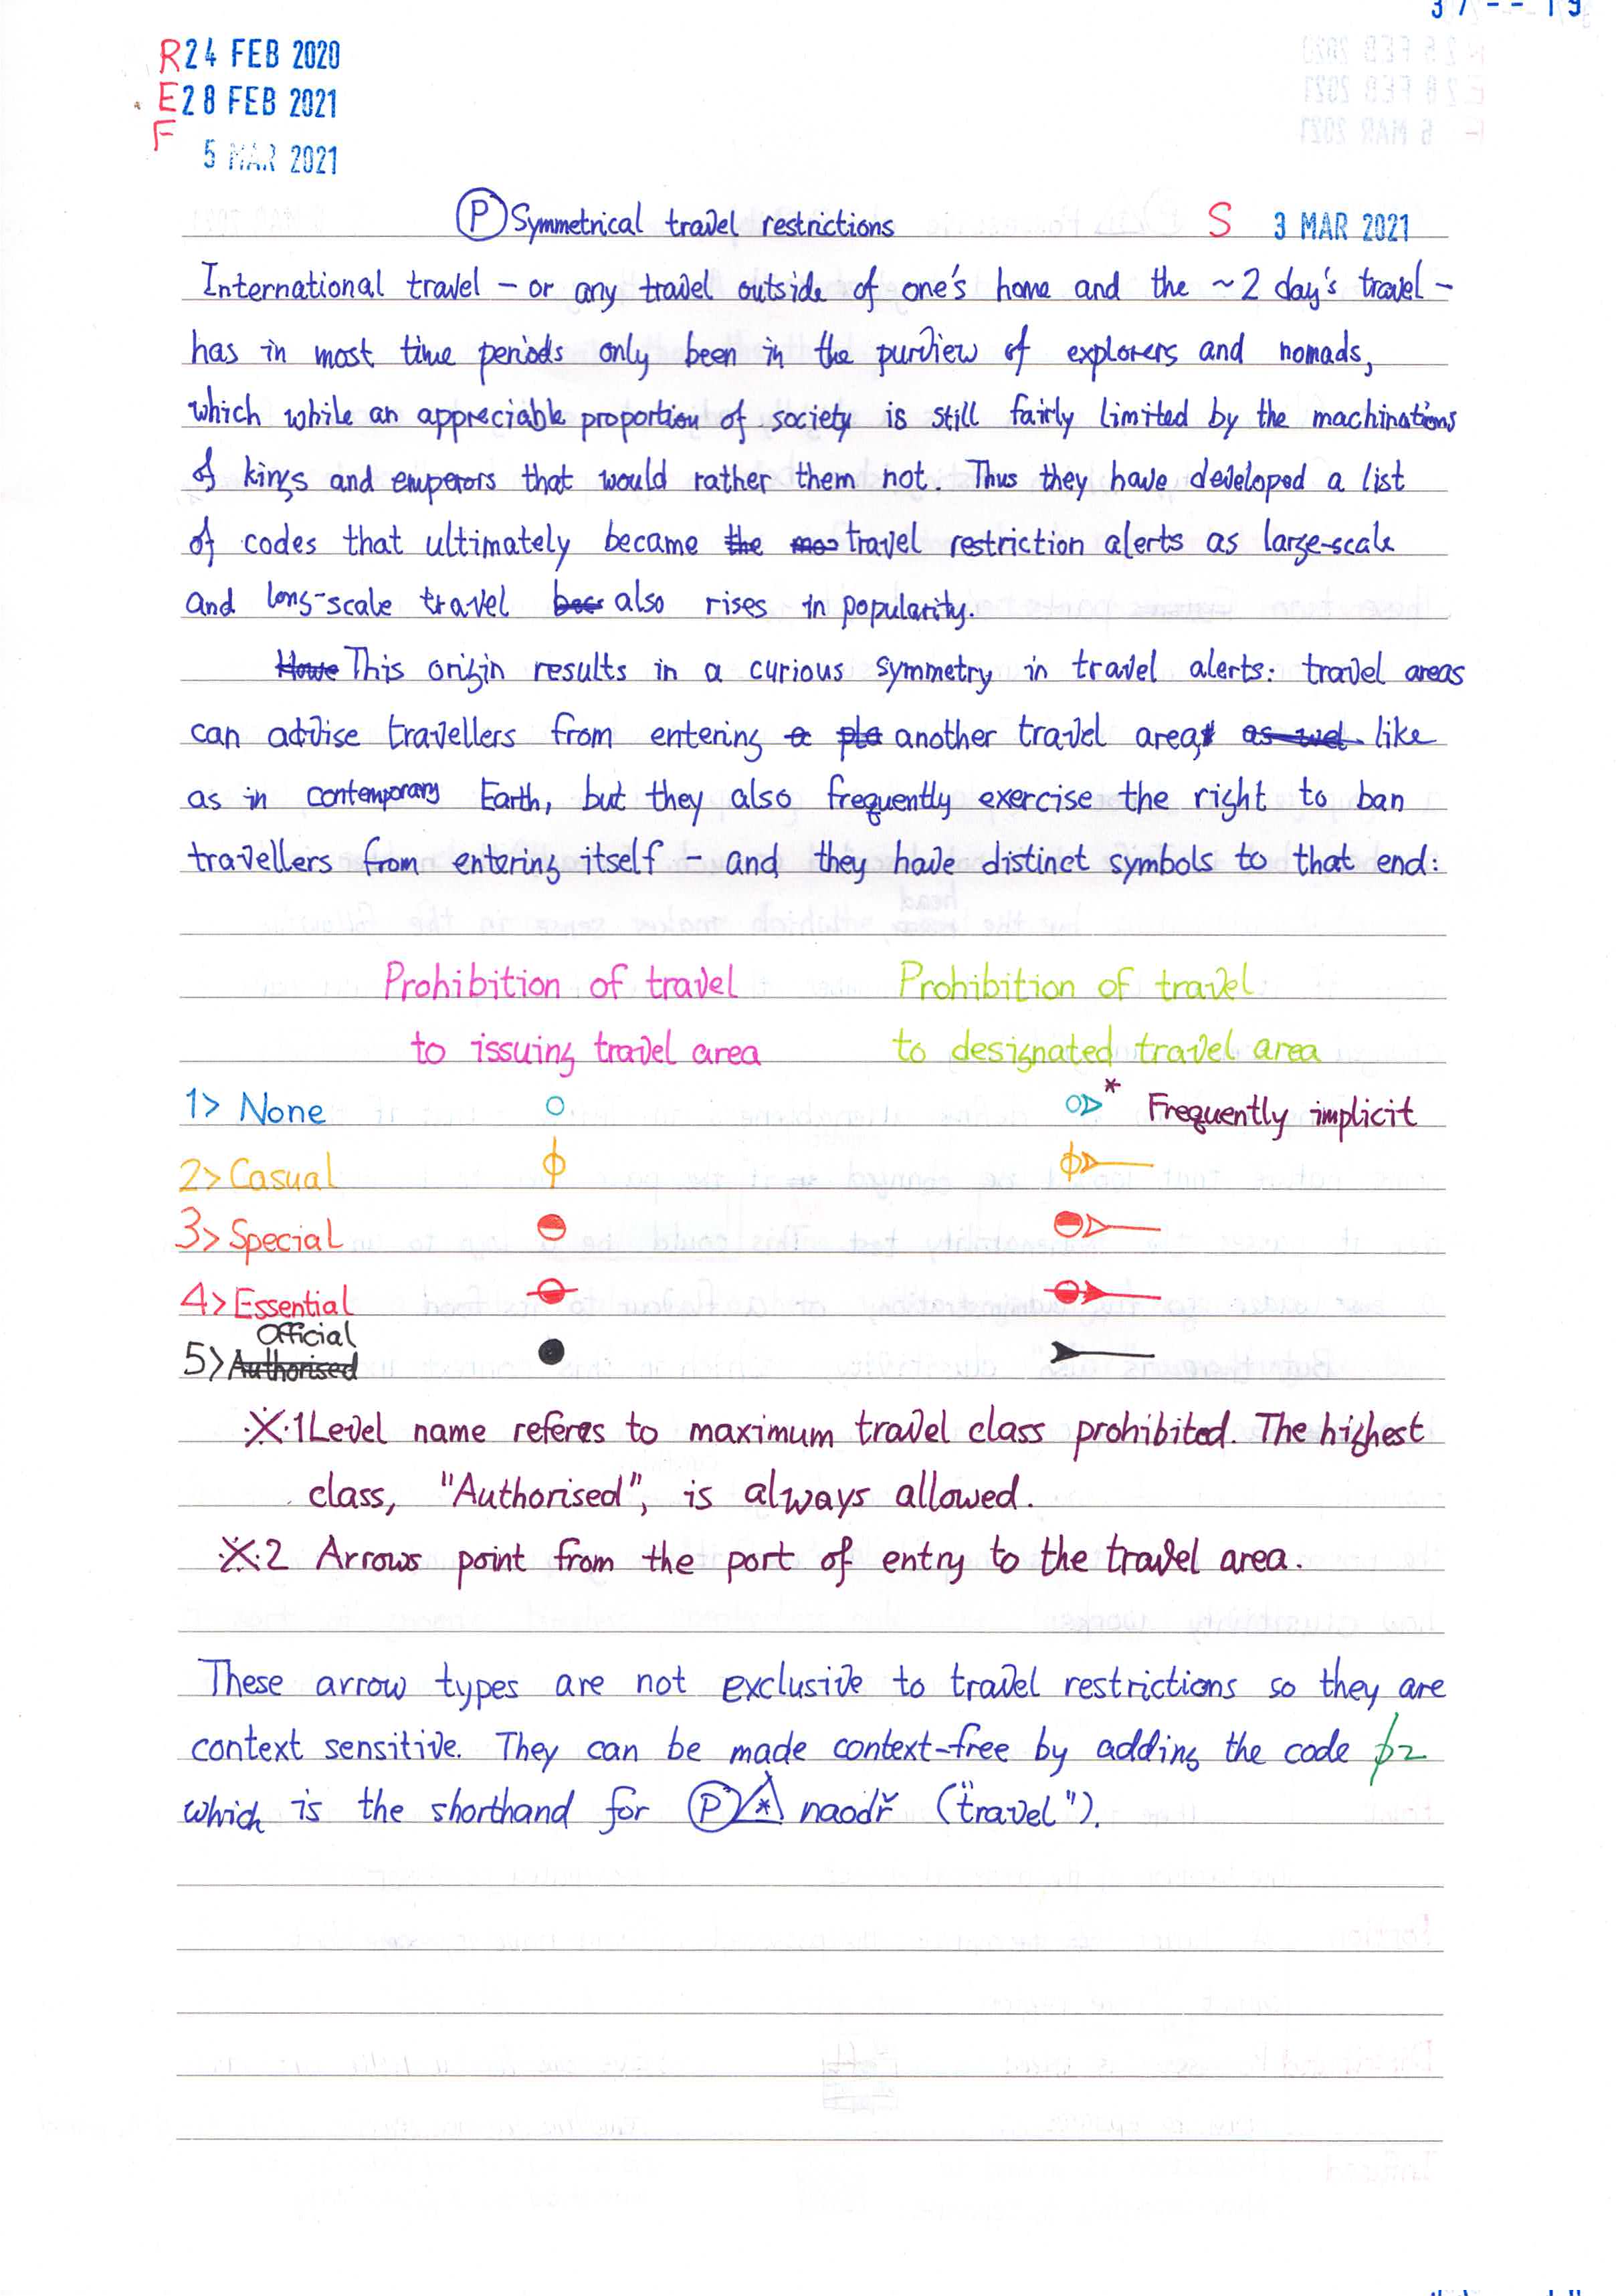 37 -- 19
R 24 FEB 2020
E 28 FEB 2021
F 5 MAR 2021
Ⓟ Symmetrical travel restrictions S 3 MAR 2021
International travel – or any travel outside of one's home and the ~2 day's travel –
has in most time periods only been in the purview of explorers and nomads,
which while an appreciable proportion of society is still fairly limited by the machinations
of kings and emperors that would rather them not. Thus they have developed a list
of codes that ultimately became the mos travel restriction alerts as large-scale
and long-scale travel bec also rises in popularity.
Howe This origin results in a curious symmetry in travel alerts: travel areas
can advise travellers from entering a pla another travel area, as wel like
as in contemporary Earth, but they also frequently exercise the right to ban
travellers from entering itself – and they have distinct symbols to that end:
Prohibition of travel Prohibition of travel
to issuing travel area to designated travel area
1> None * Frequently implicit
2> Casual
3> Special
4> Essential
Official
5> Authorised
※1 Level name referes to maximum travel class prohibited. The highest
class, "Authorised", is always allowed.
※2 Arrows point from the port of entry to the travel area.
These arrow types are not exclusive to travel restrictions so they are
context sensitive. They can be made context-free by adding the code
which is the shorthand for Ⓟ naodř ("travel").